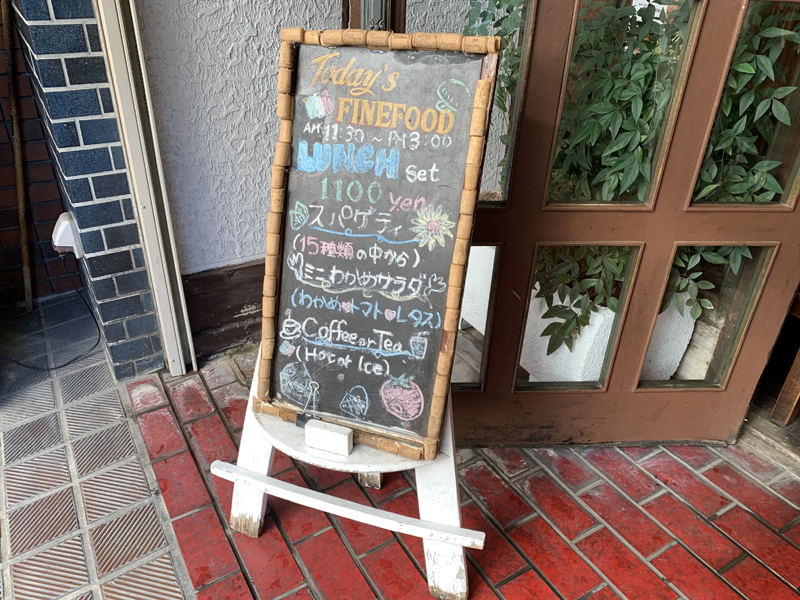 Today's
FINEFOOD
AM 11:30 ~ PM 3:00
LUNCH set
1100 yen
スパゲティ
(15種類の中から)
ミニわかめサラダ
(わかめ♥トマト♥レタス)
Coffee or Tea
(Hot or Ice)